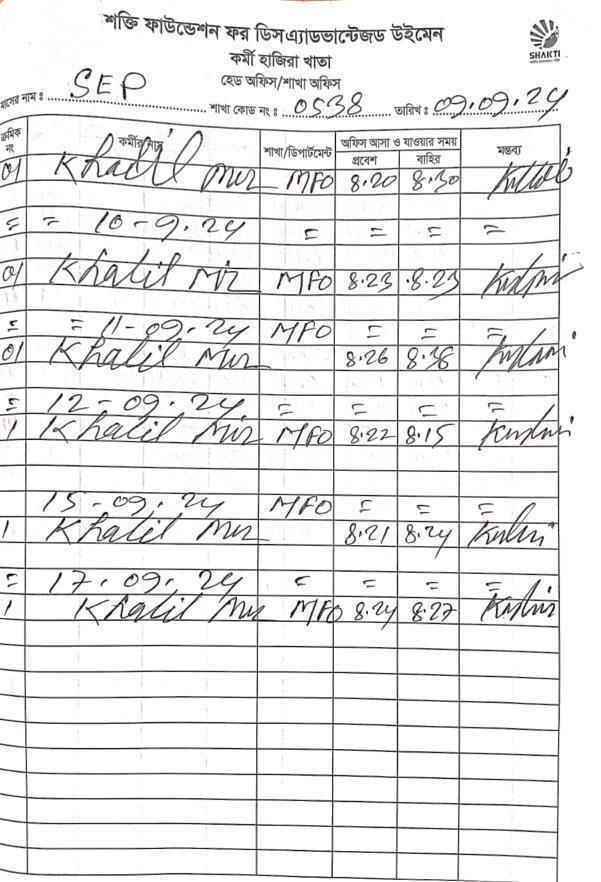 শক্তি ফাউন্ডেশন ফর ডিসএ্যাডভান্টেজড উইমেন
কর্মী হাজিরা খাতা
হেড অফিস/শাখা অফিস
SHAKTI
মাসের নাম : SEP শাখা কোড নং : 0538 তারিখ : 09.09.24
ক্রমিক নং কর্মীর নাম শাখা/ডিপার্টমেন্ট অফিস আসা ও যাওয়ার সময় মন্তব্য
প্রবেশ বাহির
01 Khalil Mir MFO 8.20 8.30
= = 10-9.24 = = = =
01 Khalil Mir MFO 8.23 8.23
= = 11-09.24 MFO = = =
01 Khalil Mir 8.26 8.38
= 12-09.24 = = = =
1 Khalil Mir MFO 8.22 8.15
15-09.24 MFO = = =
1 Khalil Mir 8.21 8.24
= 17.09.24 = = = =
1 Khalil Mir MFO 8.24 8.27